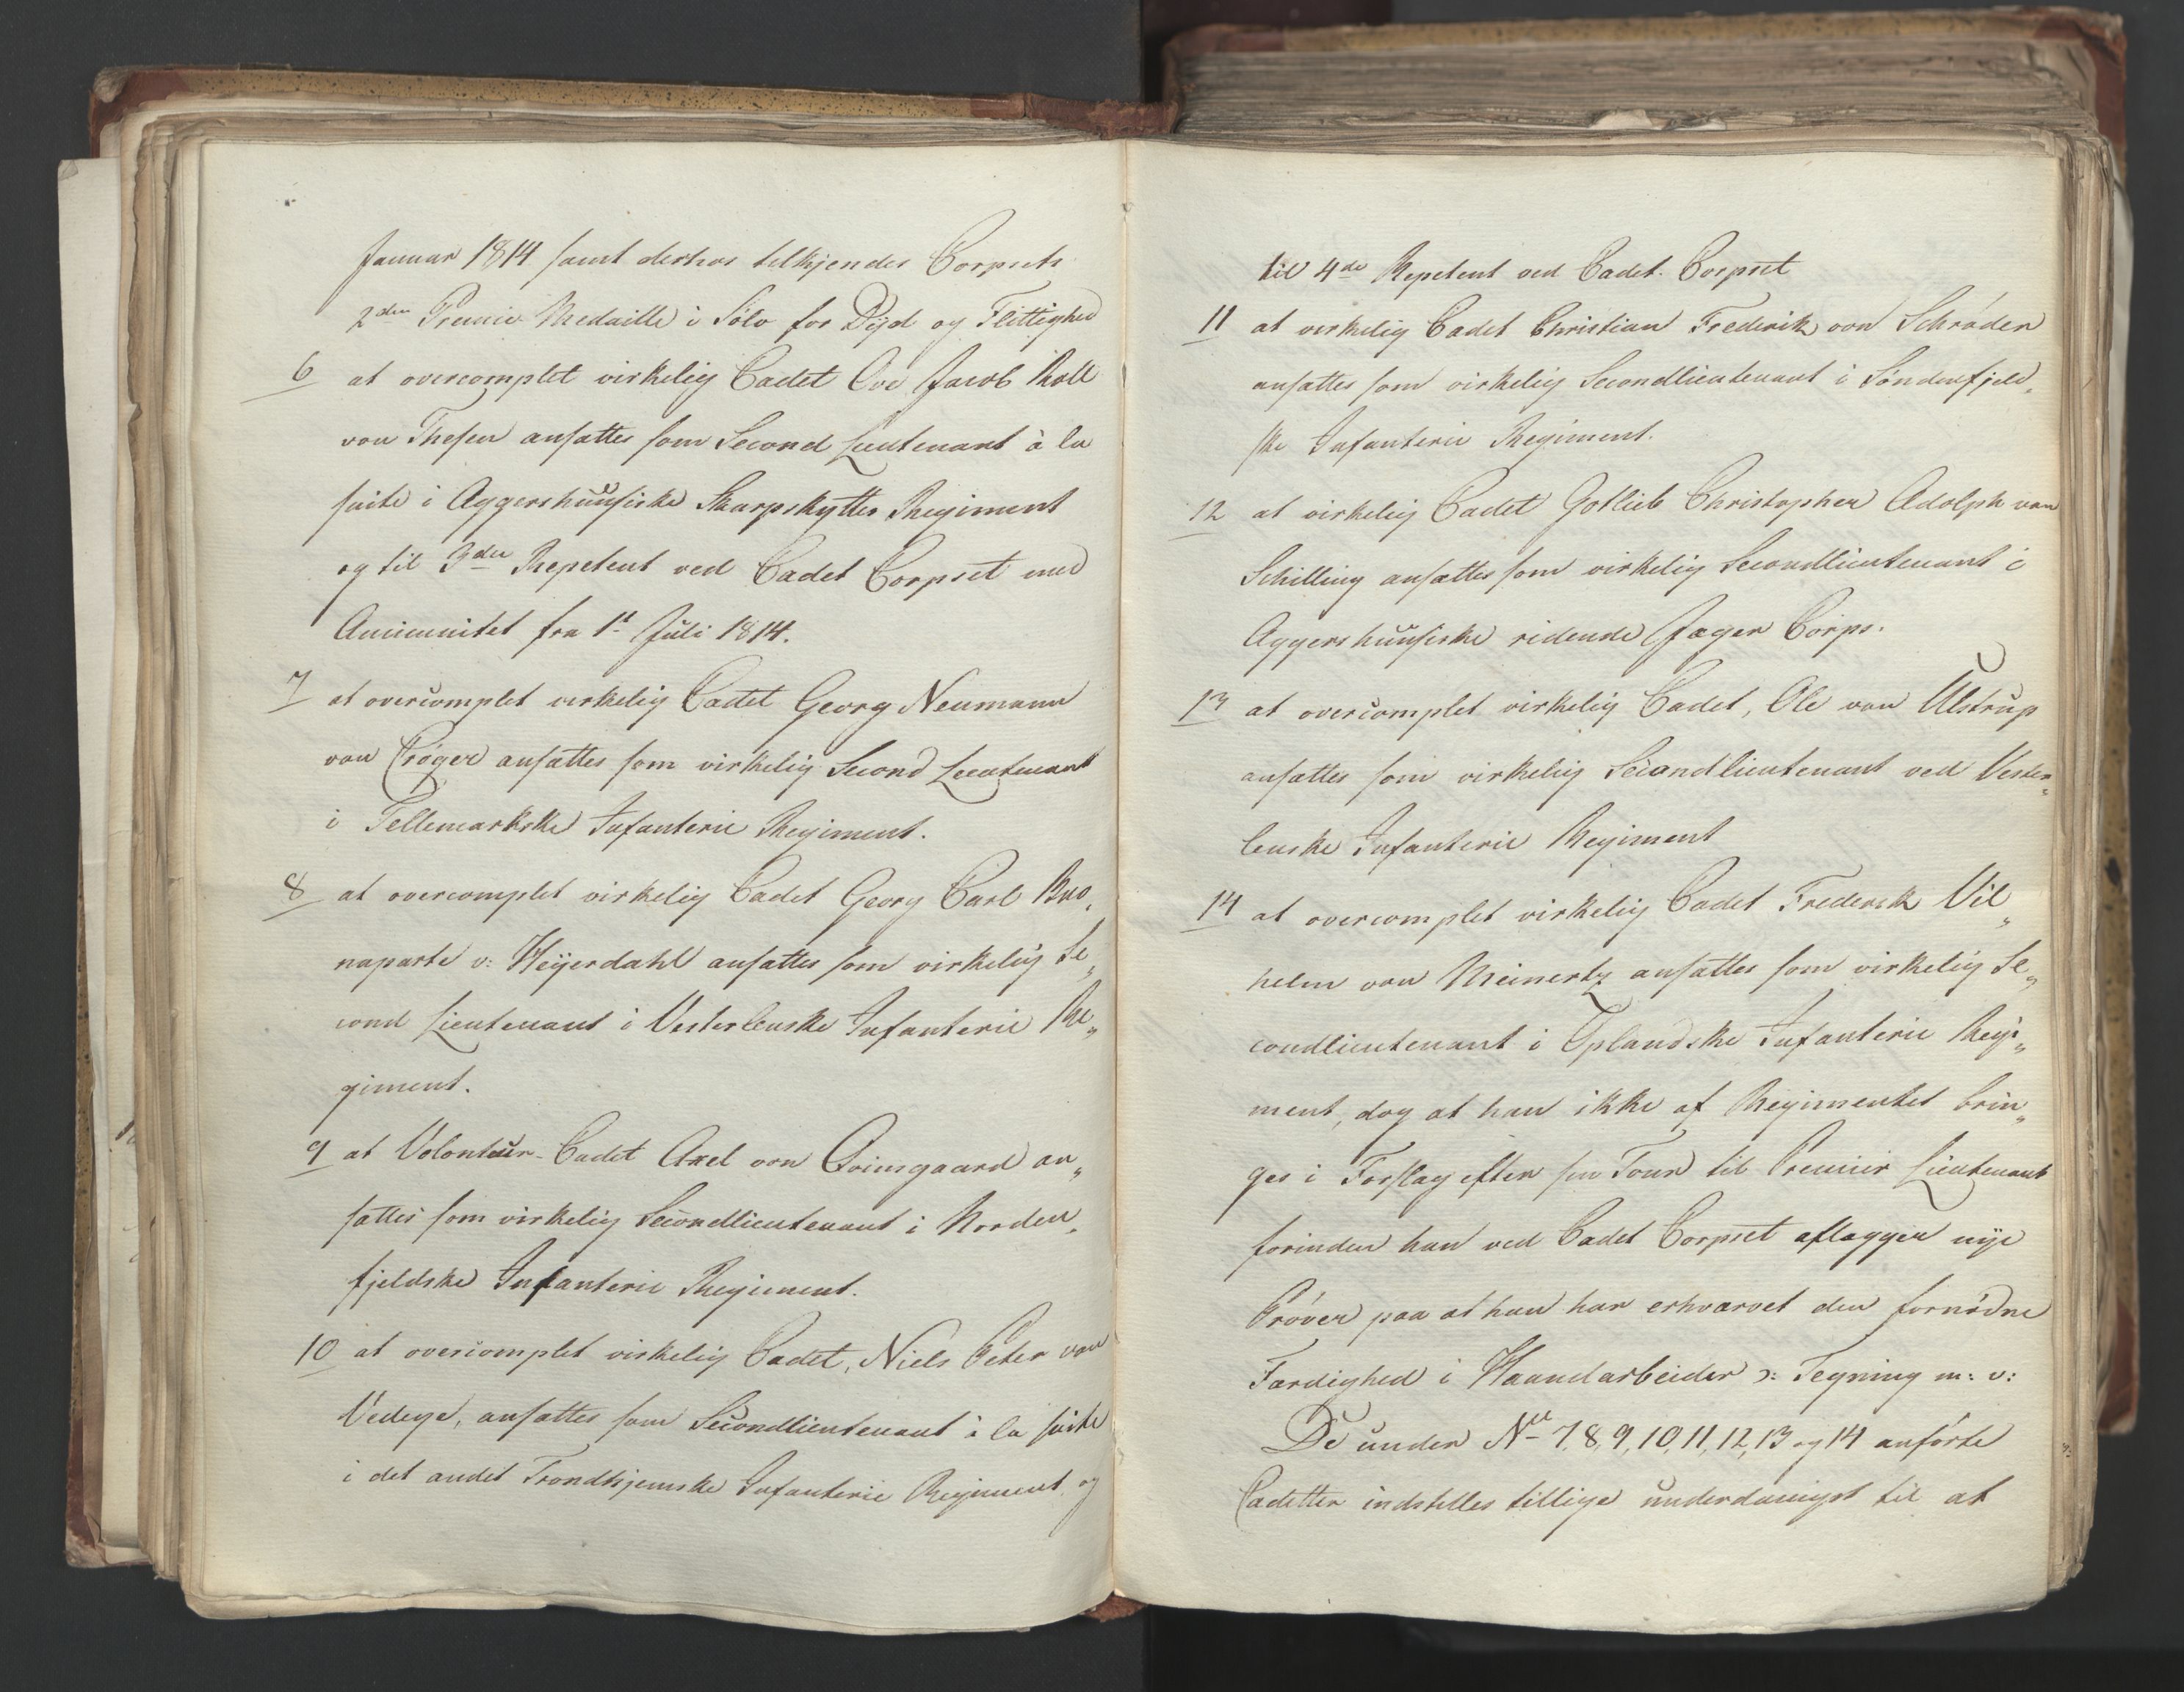 Januar 1814 samt derhos tilkjendes Corpsets
2den Premie Medaille i Sölv for Dyd og Flittighed
6 at overcomplet virkelig Cadet Ove Jacob Roll
von Thesen ansattes som Second Lieutenant à la
suite i Aggershuusiske Skarpskytter Regiment
og til 3die Repetent ved Cadet Corpset med
Anciennitet fra 1t Juli 1814.
7 at overcomplet virkelig Cadet Georg Neumann
von Cröger ansattes som virkelig Second Lieutenant
i Tellemarkske Infanterie Regiment.
8 at overcomplet virkelig Cadet Georg Carl Buo„
naparte v: Heyerdahl ansattes som virkelig Se„
cond Lieutenant i Vesterlenske Infanterie Re„
giment.
9 at Volonteur-Cadet Axel von Qvinsgaard an„
sattes som virkelig Secondlieutenant i Norden„
fjeldske Infanterie Regiment.
10 at overcomplet virkelig Cadet, Niels Peter von
Vedege, ansattes som Secondlieutenant à la suite
i det andet Trondhjemske Infanterie Regiment og
til 4de Repetent ved Cadet-Corpset
11 at virkelig Cadet Christian Frederik von Schröder
ansattes som virkelig Secondlieutenant i Söndenfjeld„
ske Infanterie Regiment.
12 at virkelig Cadet Gotlieb Christopher Adolph von
Schilling ansattes som virkelig Secondlieutenant i
Aggershuusiske ridende Jæger Corps.
13 at overcomplet virkelig Cadet, Ole von Ulstrup
ansattes som virkelig Secondlieutenant ved Vester„
lenske Infanterie Regiment
14 at overcomplet virkelig Cadet Frederik Vil„
helm von Meinertz ansattes som virkelig Se„
condlieutenant i Oplandske Infanterie Regi„
ment, dog at han ikke af Regimentet brin„
ges i Forslag efter sin Tour til Premier Lieutenant
forinden han ved Cadet Corpset aflægger nye
Pröver paa at han har erhværvet den fornödne
Færdighed i Haandarbeider ɔ: Tegning m: v:
De under No 7, 8, 9, 10, 11, 12, 13 og 14 anförte
Cadetter indstilles tillige underdanigst til at